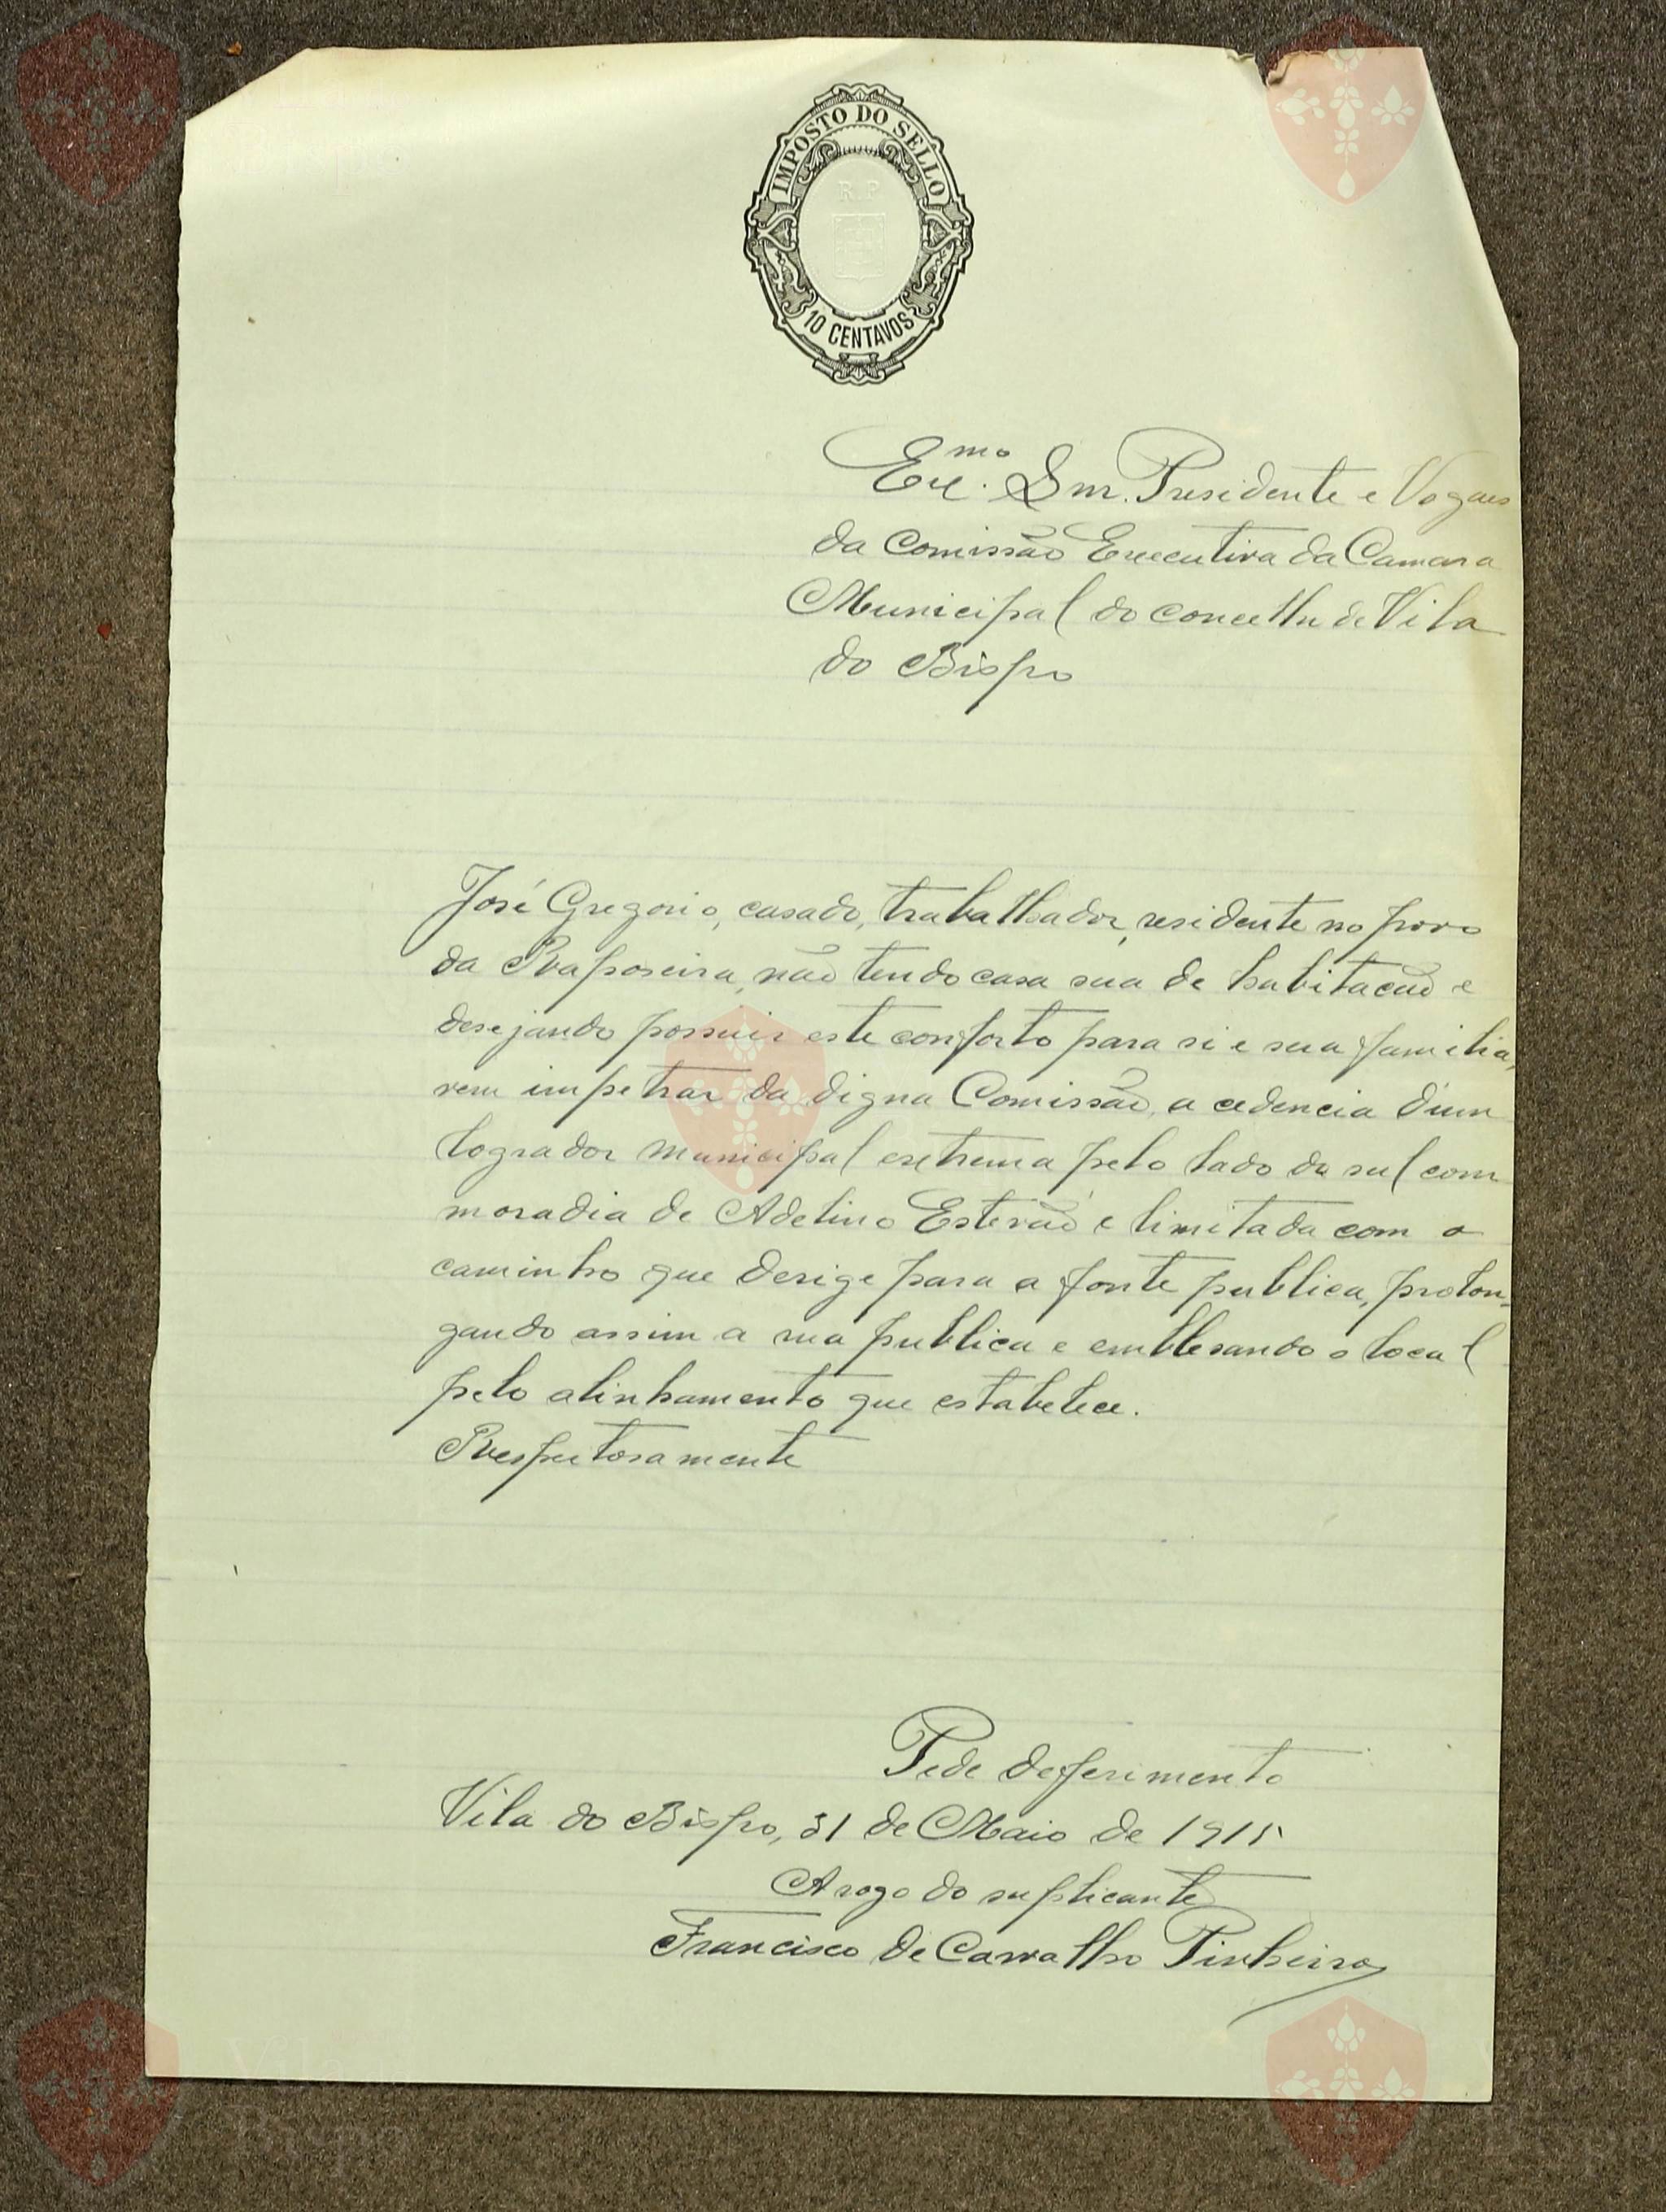 IMPOSTO DO SELLO
R.P
10 CENTAVOS
Exc.mo Snr. Presidente e Vogaes
da Comissão Executiva da Camara
Municipal do concelho de Vila
do Bispo
José Gregorio, casado, trabalhador, residente no povo
da Raposeira, não tendo casa sua de habitacão e
desejando possuir este conforto para si e sua familia,
vem impetrar da digna Comissão, a cedencia d'um
logrador municipal extrema pelo lado do sul com
moradia de Adelino Estevão e limitada com o
caminho que derige para a fonte publica, prolon-
gando assim a rua publica e emblesando o local
pelo alinhamento que estabelece.
Respeitosamente
Pede deferimento
Vila do Bispo, 31 de Maio de 1915
A rogo do suplicante
Francisco de Carvalho Pinheiro
Vila do
Bispo